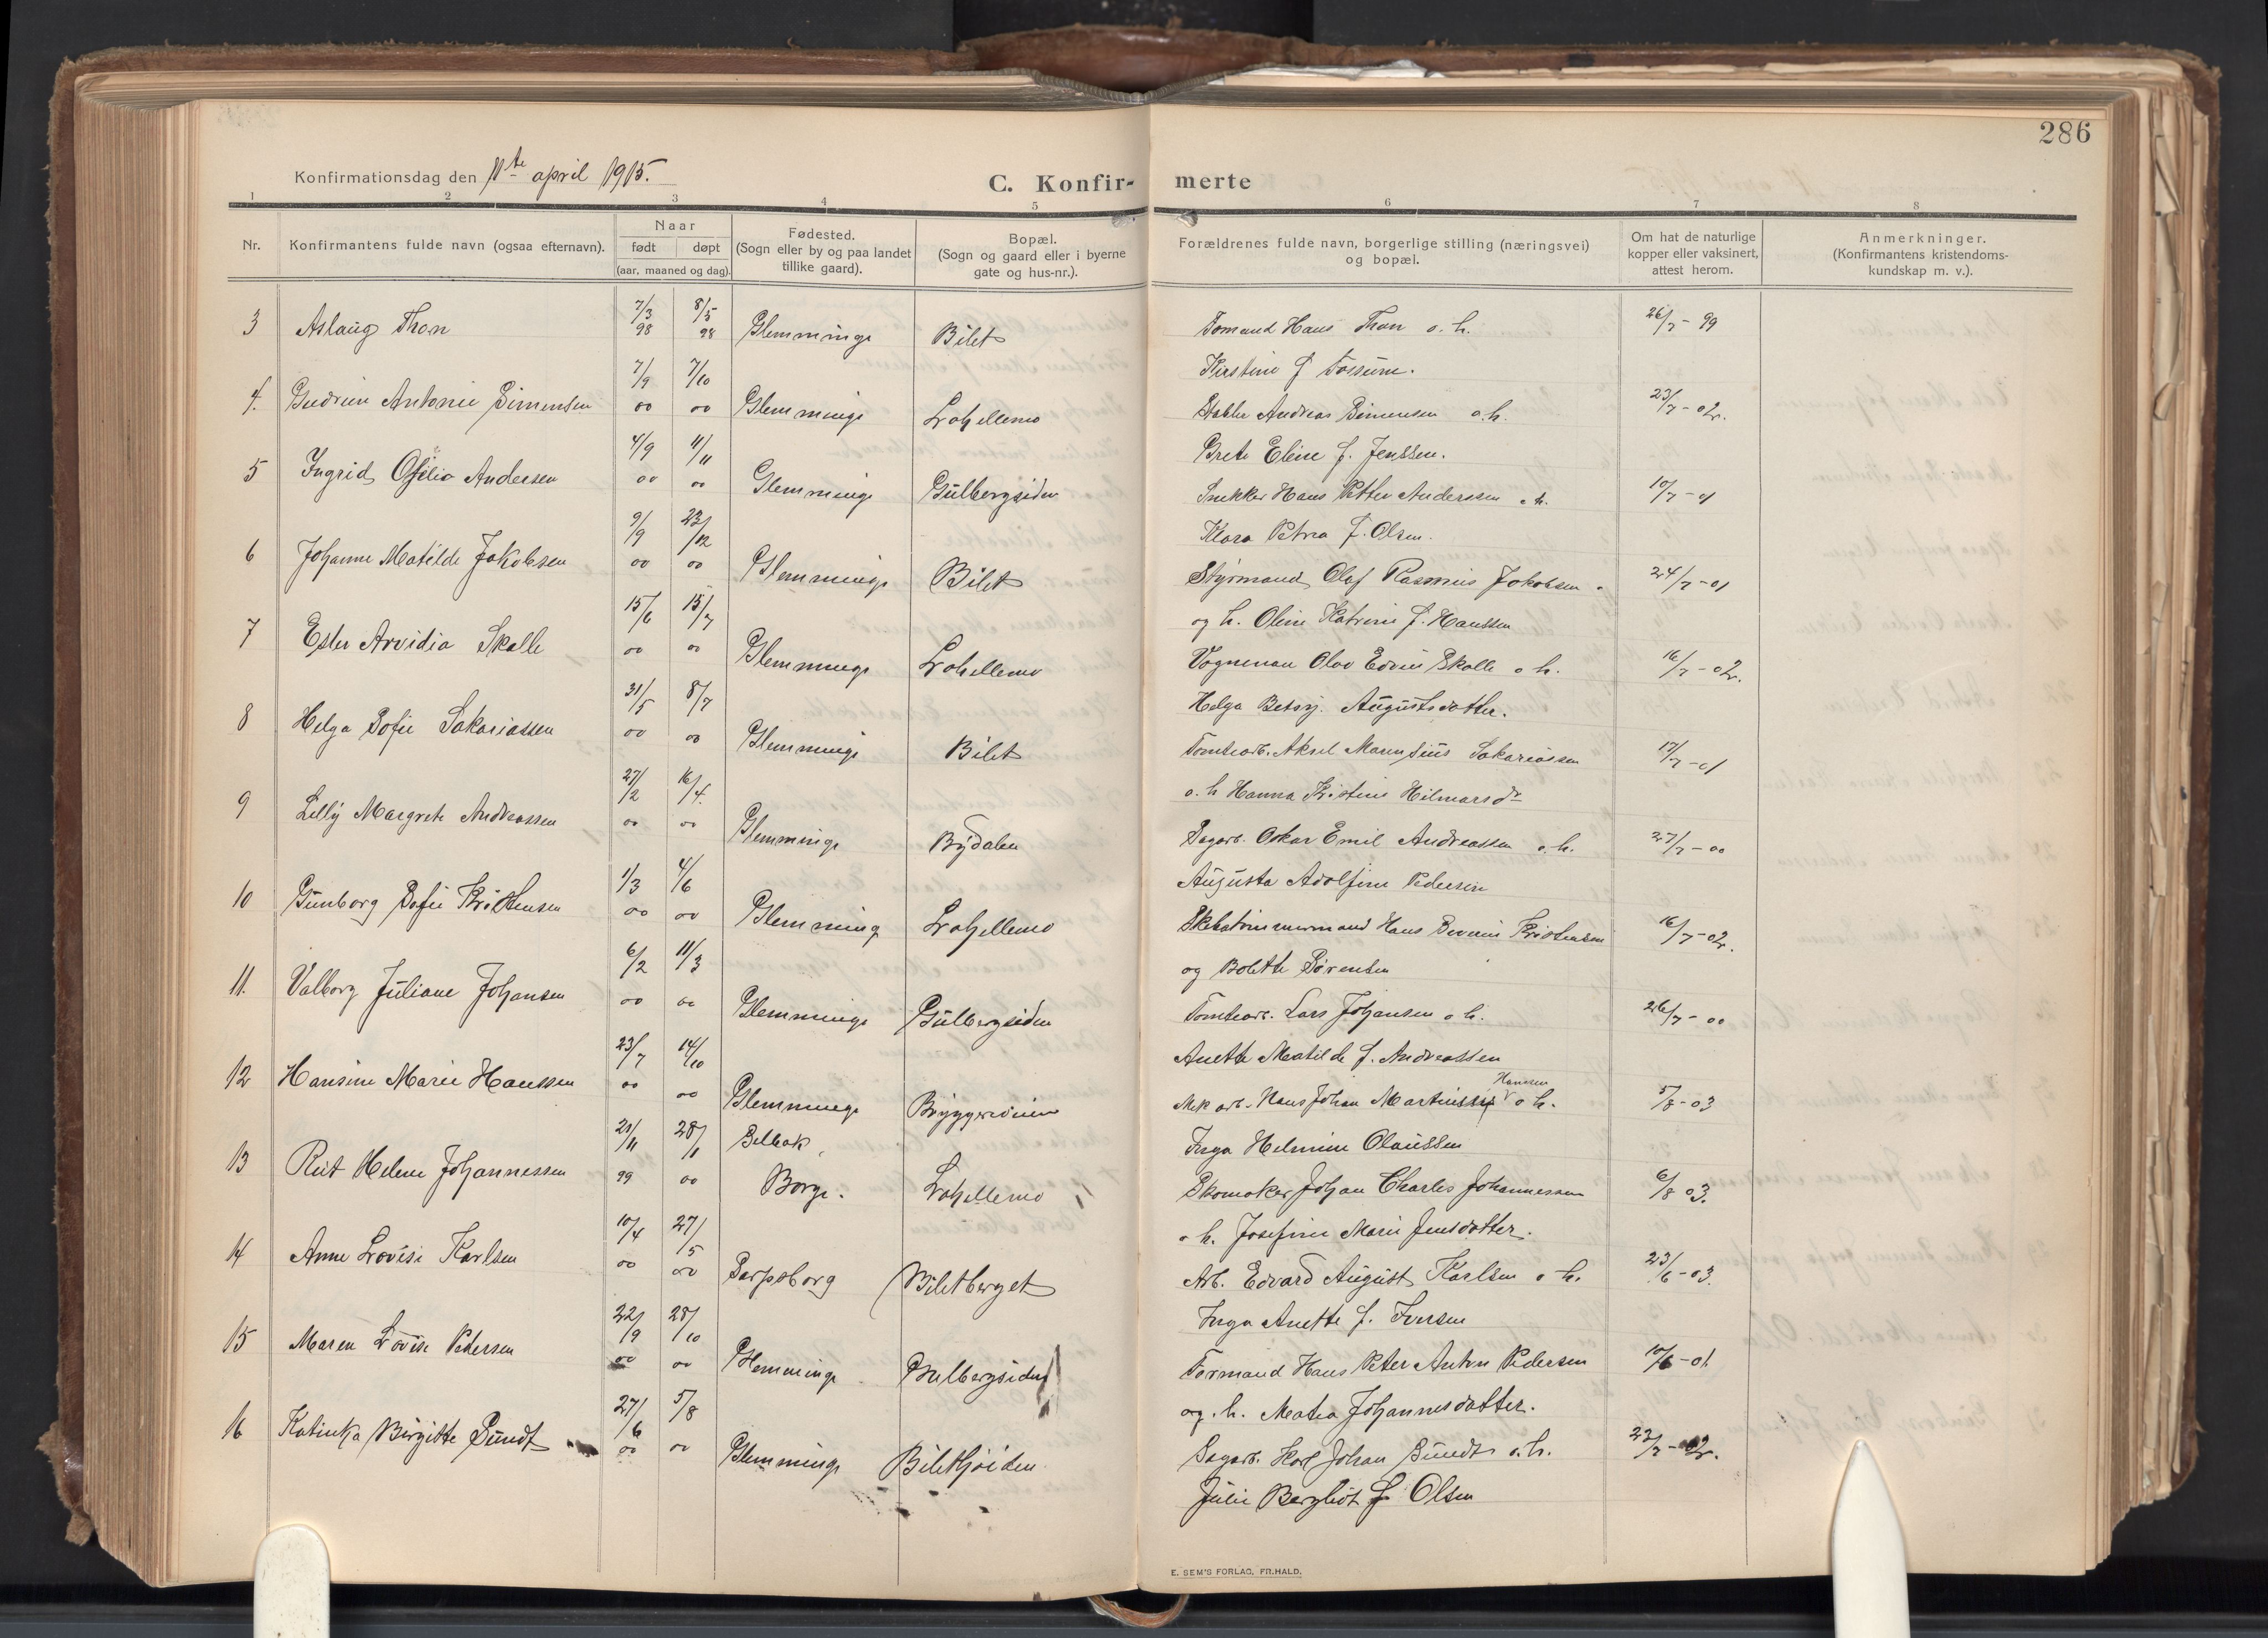 286
Konfirmationsdag den 11te april 1915.
C. Konfir- merte
1 2 3 4 5 6 7 8
Nr.
Konfirmantens fulde navn (ogsaa efternavn).
Naar
født døpt
(aar, maaned og dag).
Fødested.
(Sogn eller by og paa landet
tillike gaard).
Bopæl.
(Sogn og gaard eller i byerne
gate og hus-nr.).
Forældrenes fulde navn, borgerlige stilling (næringsvei)
og bopæl.
Om hat de naturlige
kopper eller vaksinert,
attest herom.
Anmerkninger.
(Konfirmantens kristendoms-
kundskap m. v.).
3 Aslaug Thon 7/3 98 8/5 98 Glemminge Bilet Formand Hans Thon o. h. 26/7-99
Kirstine f Fossum.
4. Gudrun Antonie Simensen 7/9 00 7/10 00 Glemminge Lahellemo Stabler Andreas Simensen o.h. 23/7-02.
Grete Eline f. Jenssen.
5 Ingrid Ofelia Andersen 4/9 00 11/11 00 Glemminge Gulbergsiden Snekker Hans Petter Anderssen o h. 10/7-01
Klara Petra f. Olsen.
6 Johanne Matilde Jakobsen 9/9 00 23/12 00 Glemminge Bilet Styrmand Olaf Rasmus Jakobsen 24/7-01
og h. Oline Katrine f. Hanssen
7 Ester Arvidia Skolle 15/6 00 15/7 00 Glemminge Lahellemo Vognman Olav Edvin Skolle o h. 16/7-02.
Helga Betsy. Augustsdatter.
8 Helga Sofie Sakariassen 31/5 00 8/7 00 Glemminge Bilet Tomtearb. Aksel Marensius Sakariassen 17/7-01
o. h Hanna Kristine Hilmarsdr
9 Lilly Margrete Andreassen 27/2 00 16/4. 00 Glemminge Bydalen Sagarb. Oskar Emil Andreassen o.h. 27/7-00
Augusta Adolfine Pedersen
10 Gunborg Sofie Kristensen 1/3 00 4/6 00 Glemming Lahellemo Skibstømmermand Hans Severin Kristensen 16/7-02.
og Bolette Sørensen
11. Valborg Juliane Johansen 6/2 00 11/3 00 Glemminge Gulbergsiden Tomtearb. Lars Johansen o h. 26/7-00
Anette Matilde f. Andreassen
Hanssen
12 Hansine Marie Hanssen 23/7 00 14/10 00 Glemminge Bryggeriveien Mek arb. Hans Johan Martinssen o h. 5/8-03
Inga Helmine Olaussen
13 Rut Helene Johannessen 21/11 99 28/1 00 Selbak, Borge. Lahellemo Skomaker Johan Charles Johannessen 6/8 03.
o h. Josefine Marie Jensdatter.
14 Anne Lovise Karlsen 10/4 00 27/5 00 Sarpsborg Biletberget Arb. Edvard August Karlsen o h. 23/6-03.
Inga Anette f. Iversen
15 Maren Lovise Pedersen 22/9 00 28/10 00 Glemminge Gulbergsiden Formand Hans Peter Anton Pedersen 10/6-01.
og. h. Matea Johannesdatter.
16 Katinka Birgitte Sundt 27/6 00 5/8 00 Glemminge Biletkjøiden Sagarb. Karl Johan Sundt o. h. 23/7-02.
Julie Bergliot f Olsen
E. SEM'S FORLAG, FR.HALD.